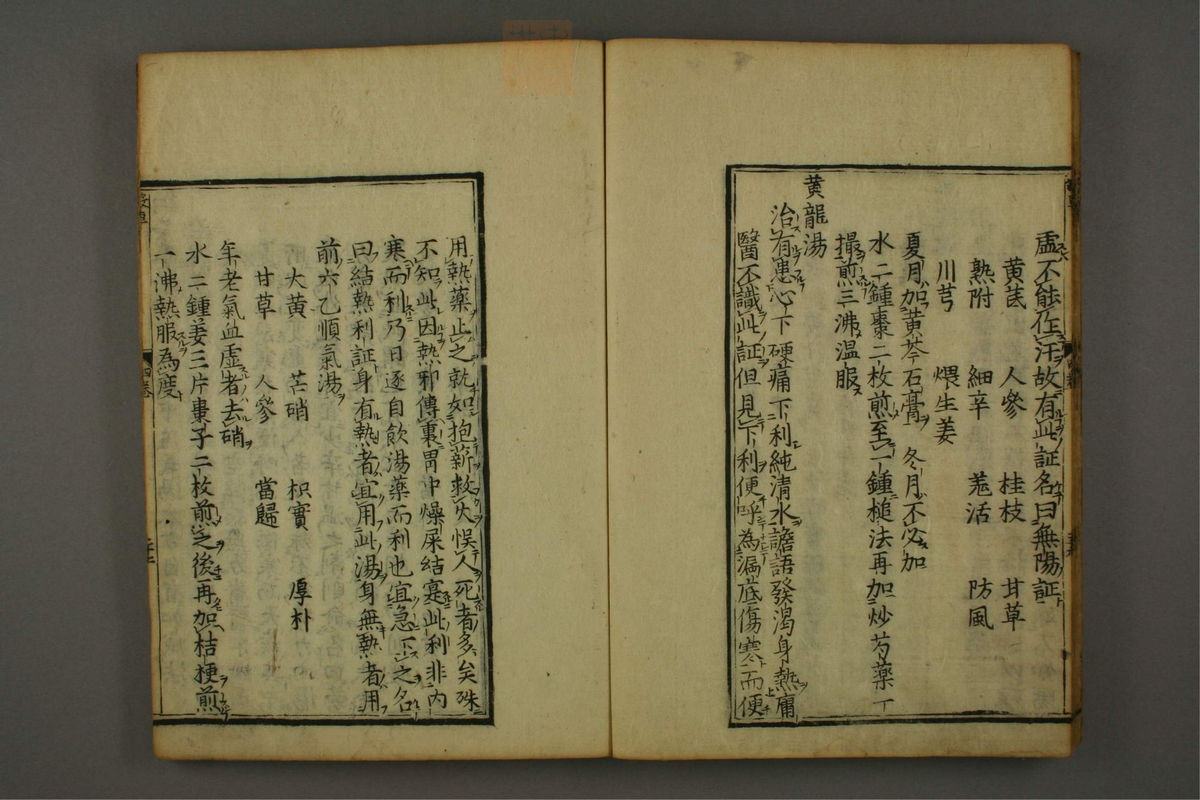 虛不能作汗故有此証名曰無陽証
黃芪 人參 桂枝 甘草
熟附 細辛 羗活 防風
川芎 煨生姜
夏月加黃芩石膏 冬月不必加
水二鍾棗二枚煎至一鍾槌法再加炒芍藥一
撮煎三沸温服
黃龍湯
治有患心下硬痛下利純清水譫語發渴身熱庸
醫不識此証但見下利便呼為漏底傷寒而便
用熱藥止之就如抱薪救火悞人死者多矣殊
不知此因熱邪傳裏胃中燥屎結実此利非內
寒而利乃日逐自飲湯藥而利也宜急下之名
曰結熱利証身有熱者宜用此湯身無熱者用
前六乙順氣湯
大黃 芒硝 枳實 厚朴
甘草 人參 當歸
年老氣血虛者去硝
水二鍾姜三片棗子二枚煎之後再加桔梗煎
一沸熱服為度
四卷